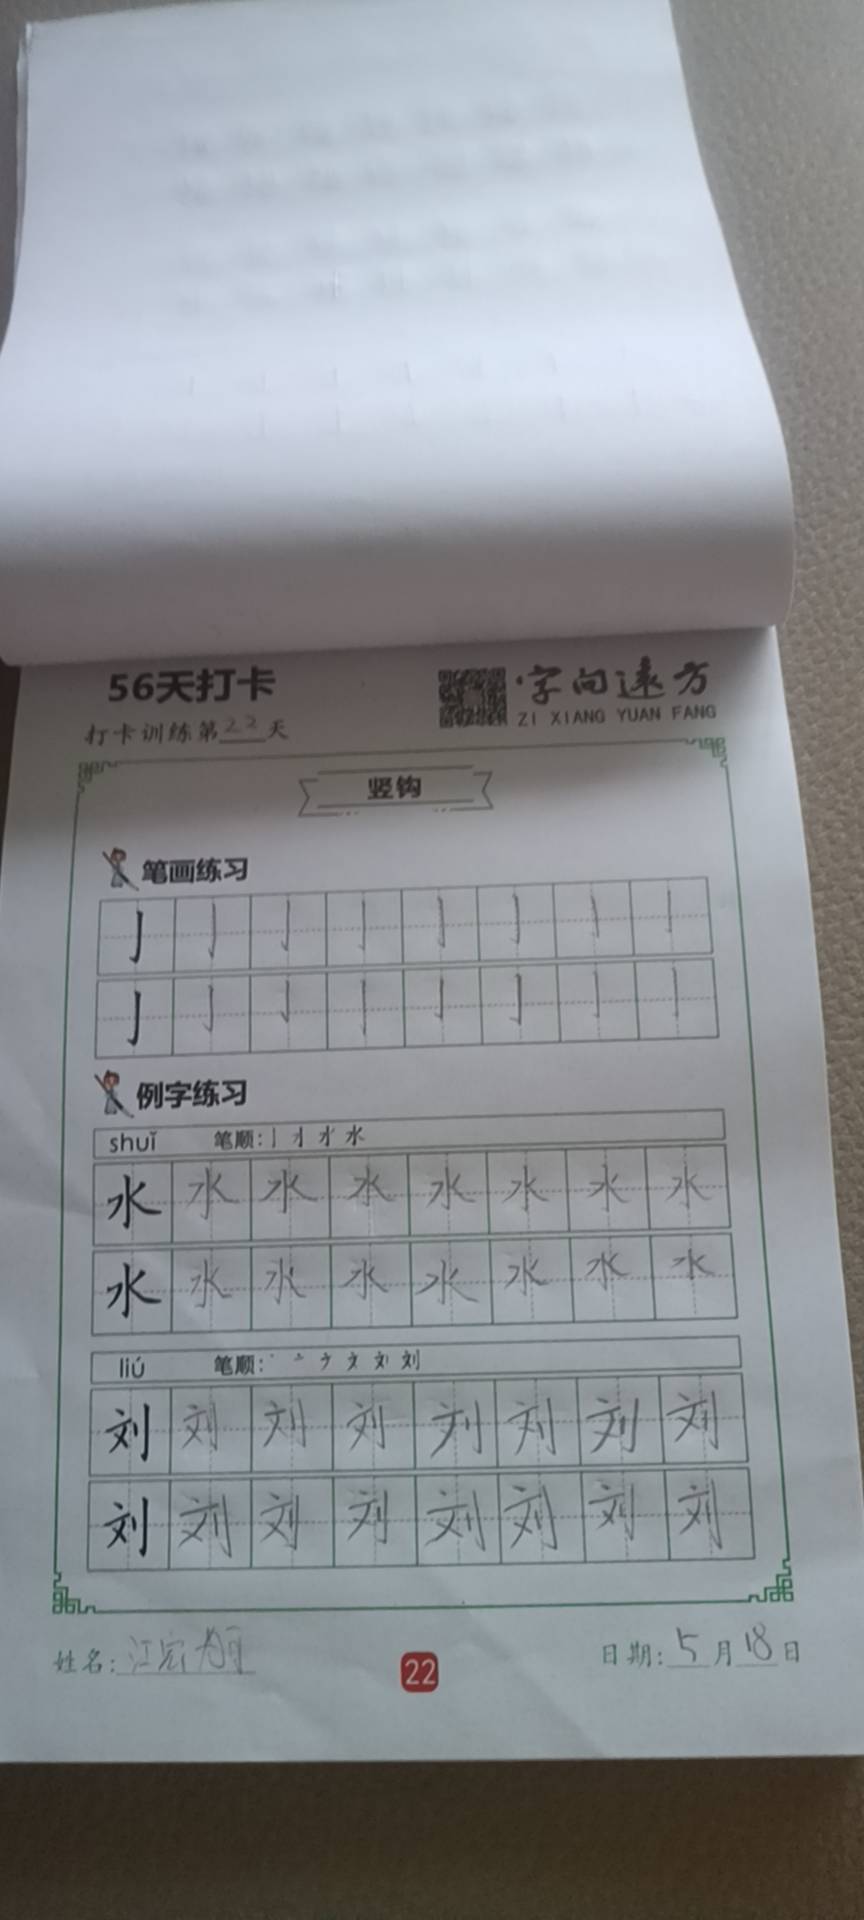 56天打卡
字向远方
ZI XIANG YUAN FANG
打卡训练第22天
竖钩
笔画练习
亅 亅 亅 亅 亅 亅 亅 亅
亅 亅 亅 亅 亅 亅 亅 亅
例字练习
shuǐ 笔顺:
水 水 水 水 水 水 水 水
水 水 水 水 水 水 水 水
liú 笔顺:
刘 刘 刘 刘 刘 刘 刘 刘
刘 刘 刘 刘 刘 刘 刘 刘
姓名:江宏
22
日期:5月18日